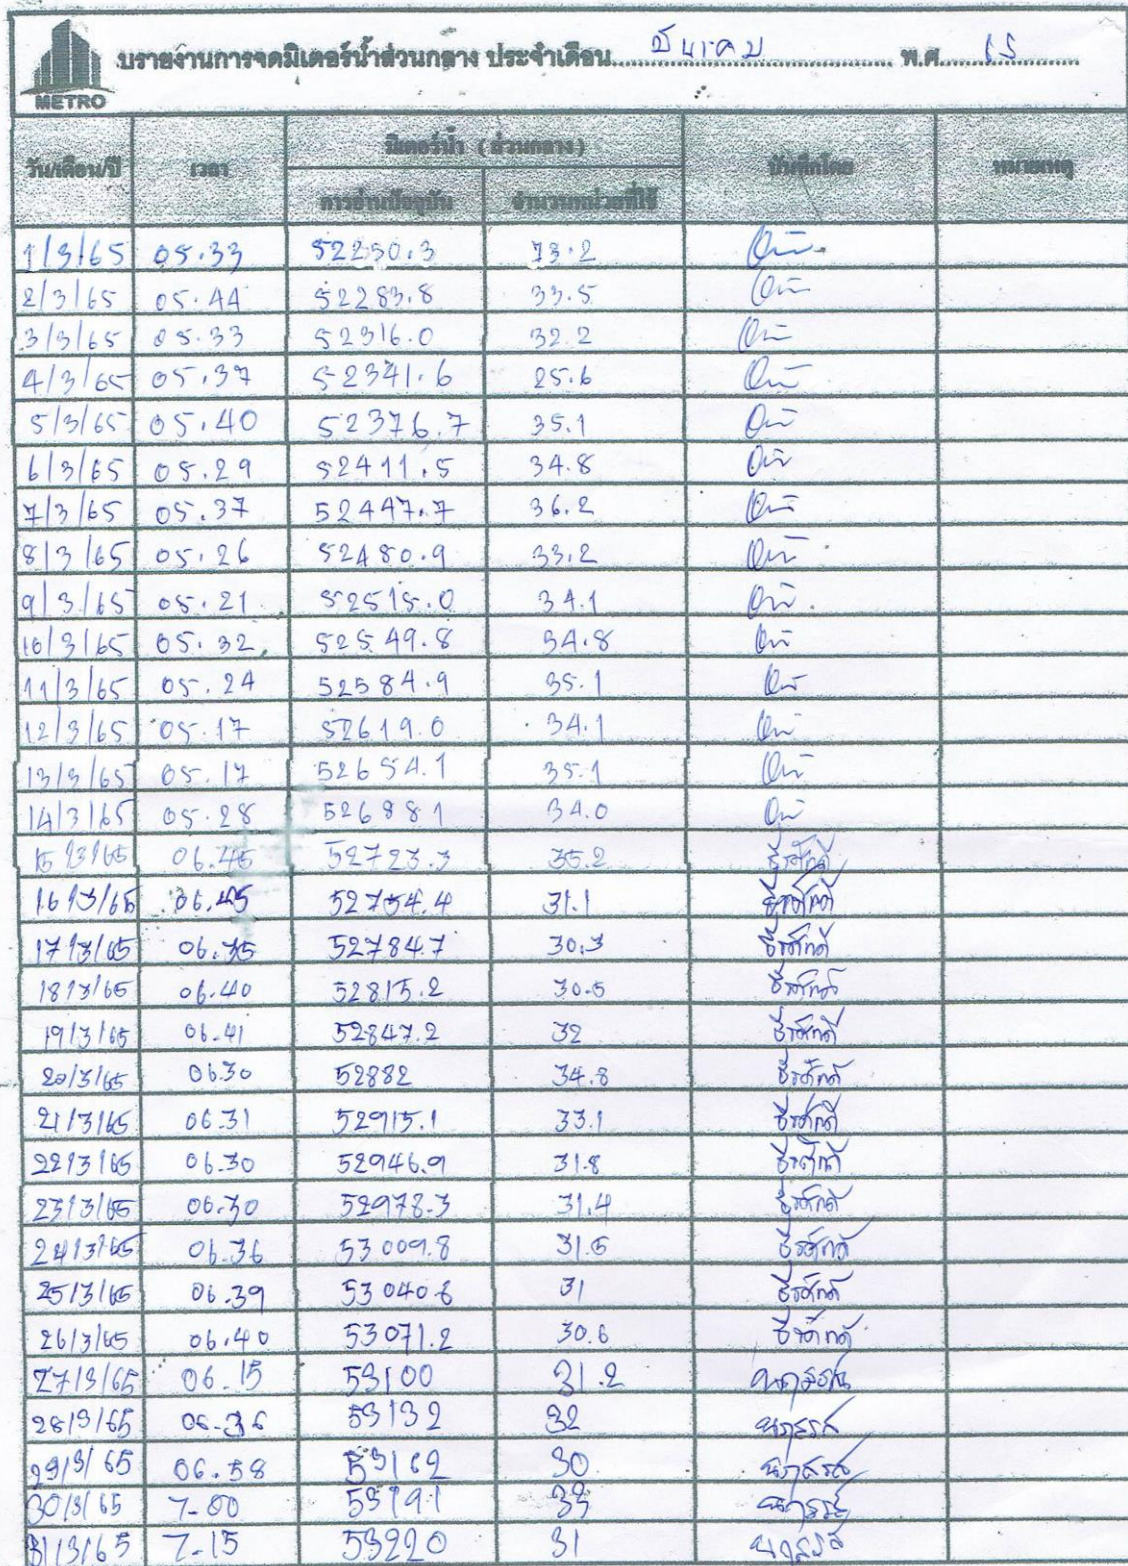 METRO
บรายงานการจดมิเตอร์น้ำส่วนกลาง ประจำเดือน.......มีนาคม....... พ.ศ.......65.......
วัน/เดือน/ปี เวลา มิเตอร์น้ำ (ส่วนกลาง) บันทึกโดย หมายเหตุ
การอ่านปัจจุบัน จำนวนหน่วยที่ใช้
1/3/65 05.33 52250.3
2/3/65 05.44 52283.8 33.5
3/3/65 05.33 52316.0 32.2
4/3/65 05.37 52341.6 25.6
5/3/65 05.40 52376.7 35.1
6/3/65 05.29 52411.5 34.8
7/3/65 05.37 52447.7 36.2
8/3/65 05.26 52480.9 33.2
9/3/65 05.21 52515.0 34.1
10/3/65 05.32 52549.8 34.8
11/3/65 05.24 52584.9 35.1
12/3/65 05.17 52619.0 34.1
13/3/65 05.17 52654.1 35.1
14/3/65 05.28 526881 34.0
15/3/65 06.45 52723.3 35.2 ธีรศักดิ์
16/3/65 06.45 52754.4 31.1 ธีรศักดิ์
17/3/65 06.35 52784.7 30.3 ธีรศักดิ์
18/3/65 06.40 52815.2 30.5 ธีรศักดิ์
19/3/65 06.41 52847.2 32 ธีรศักดิ์
20/3/65 06.30 52882 34.8 ธีรศักดิ์
21/3/65 06.31 52915.1 33.1 ธีรศักดิ์
22/3/65 06.30 52946.9 31.8 ธีรศักดิ์
23/3/65 06.30 52978.3 31.4 ธีรศักดิ์
24/3/65 06.36 53009.8 31.5 ธีรศักดิ์
25/3/65 06.39 53040.6 31 ธีรศักดิ์
26/3/65 06.40 53071.2 30.6 ธีรศักดิ์
27/3/65 06.15 53100 31.2
28/3/65 06.36 53132 32
29/3/65 06.58 53162 30
30/3/65 7.00 53191 33
31/3/65 7.15 53220 31